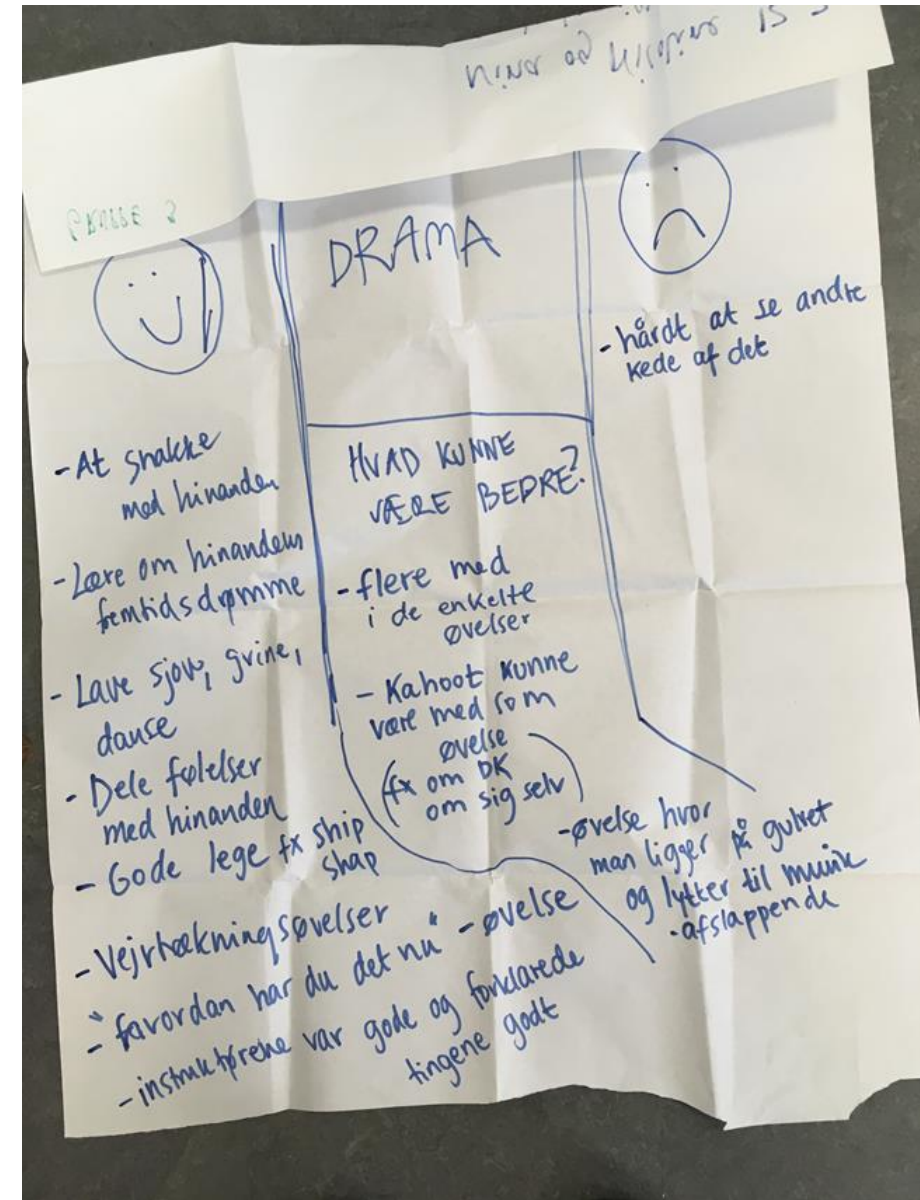 DRAMA
- At snakke
med hinanden
- Lære om hinandens
fremtidsdrømme
- Lave sjov, grine,
danse
- Dele følelser
med hinanden
- Gode lege fx ship
shap
- Vejrtrækningsøvelser
- "favordan har du det nu" - øvelse
- instruktørene var gode og forklarede
tingene godt
HVAD KUNNE
VÆRE BEDRE?
- flere med
i de enkelte
øvelser
- Kahoot kunne
være med som
øvelse
(fx om DK
om sig selv)
- øvelse hvor
man ligger på gulvet
og lytter til musik
- afslappende
- hårdt at se andre
kede af det